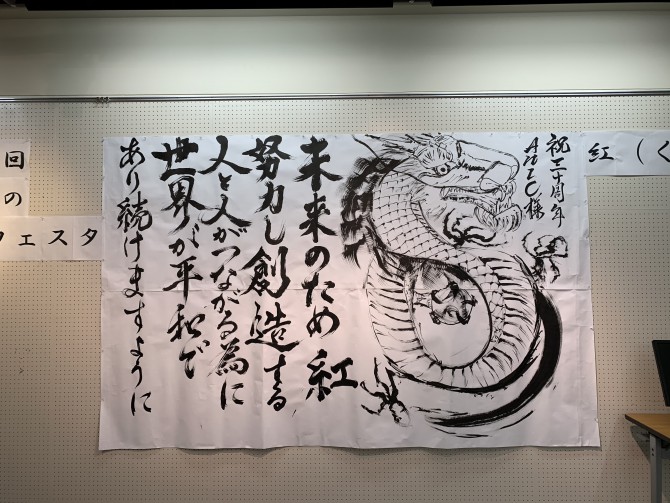 祝三十周年
ANIC様
未来のため 紅
努力し創造する
人と人がつながる為に
世界が平和で
あり続けますように
紅(く
回
の
フェスタ